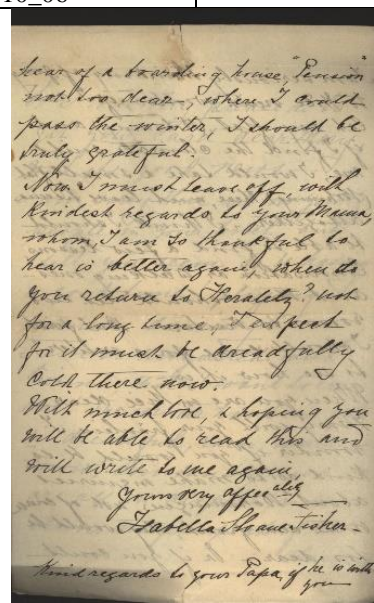 hear of a boarding house, "Pension"
not too dear, where I could
pass the winter, I should be
truly grateful.
Now I must leave off, with
kindest regards to your Mama,
whom I am so thankful to
hear is better again, when do
you return to ? not
for a long time, I expect
for it must be dreadfully
cold there now.
With much love, & hoping you
will be able to read this and
will write to me again,
Yours very affec ately
Isabella Sloane Fisher -
Kind regards to your Papa, if he is with
you